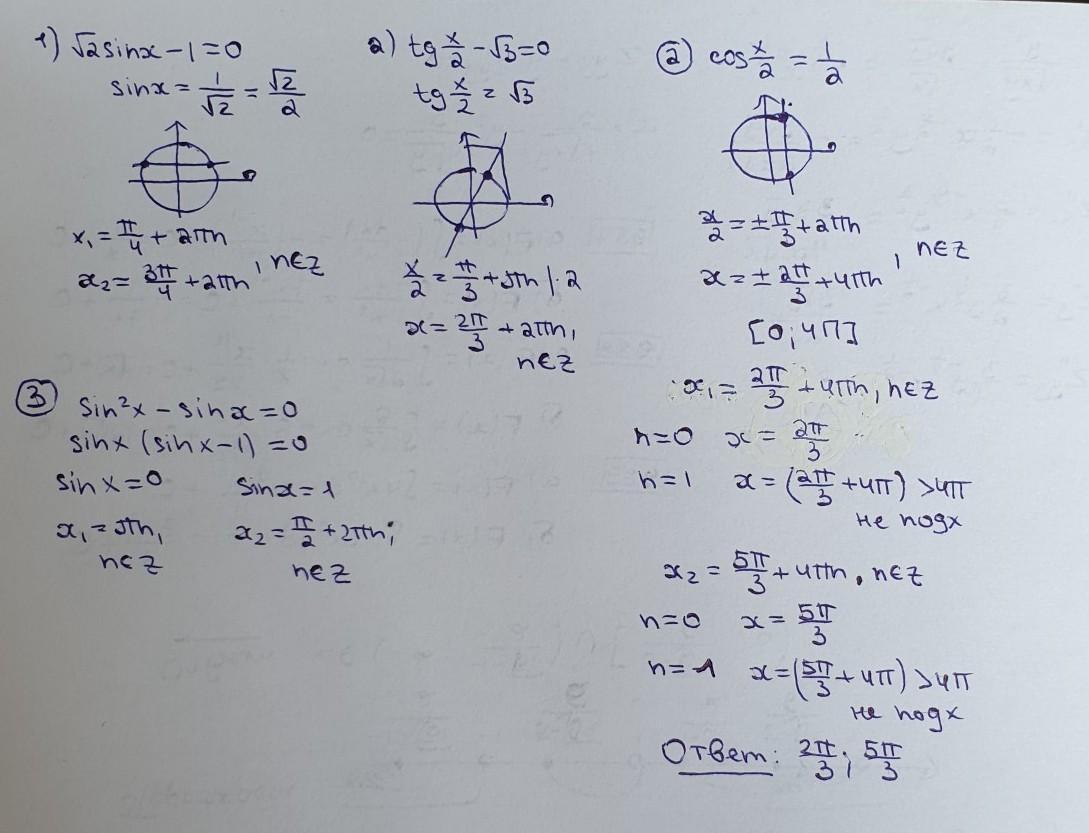 1) √2 sinx − 1 = 0
sinx = 1/√2 = √2/2
x₁ = π/4 + 2πn
x₂ = 3π/4 + 2πn , n∈Z
2) tg x/2 − √3 = 0
tg x/2 = √3
x/2 = π/3 + πn |·2
x = 2π/3 + 2πn,
n∈Z
② cos x/2 = 1/2
x/2 = ± π/3 + 2πn
x = ± 2π/3 + 4πn , n∈Z
[0; 4π]
x₁ = 2π/3 + 4πn, n∈Z
n=0 x = 2π/3
n=1 x = (2π/3 + 4π) > 4π
не подх
x₂ = 5π/3 + 4πn, n∈Z
n=0 x = 5π/3
n=1 x = (5π/3 + 4π) > 4π
не подх
Ответ: 2π/3; 5π/3
③ sin²x − sinx = 0
sinx (sinx − 1) = 0
sinx = 0 sinx = 1
x₁ = πn, x₂ = π/2 + 2πn;
n∈Z n∈Z